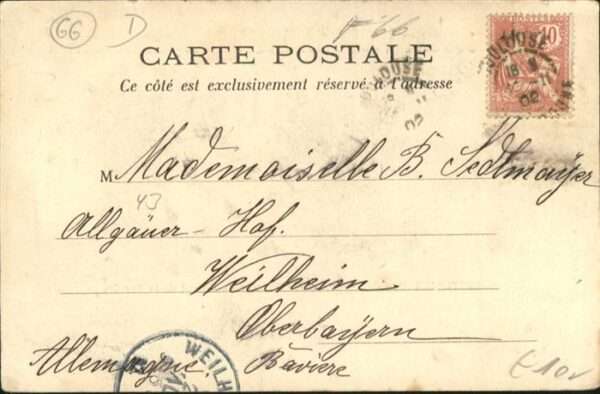 66 D F 66
CARTE POSTALE
Ce côté est exclusivement réservé à l'adresse
10
TOULOUSE
18
02
M Mademoiselle B. Sedlmayer
43
Allgäuer - Hof.
Weilheim
Oberbayern
Allemagne. Bavière
WEILH